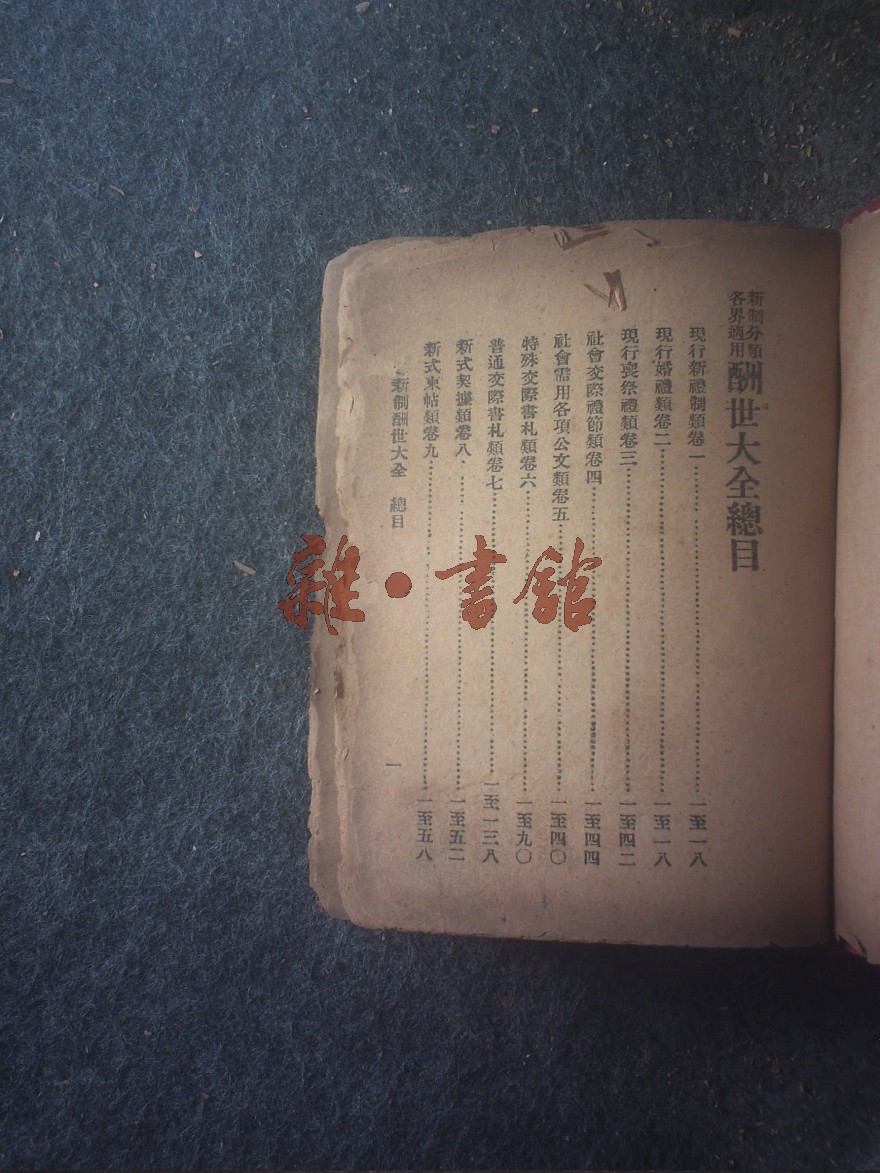 新制分類
各界適用
酬世大全總目
現行新禮制類卷一……一至一八
現行婚禮類卷二……一至一八
現行喪祭禮類卷三……一至四二
社會交際禮節類卷四……一至四四
社會需用各項公文類卷五……一至四〇
特殊交際書札類卷六……一至九〇
普通交際書札類卷七……一至一三八
新式契據類卷八……一至五二
新式柬帖類卷九……一至五八
新制酬世大全 總目
一
雜·書館